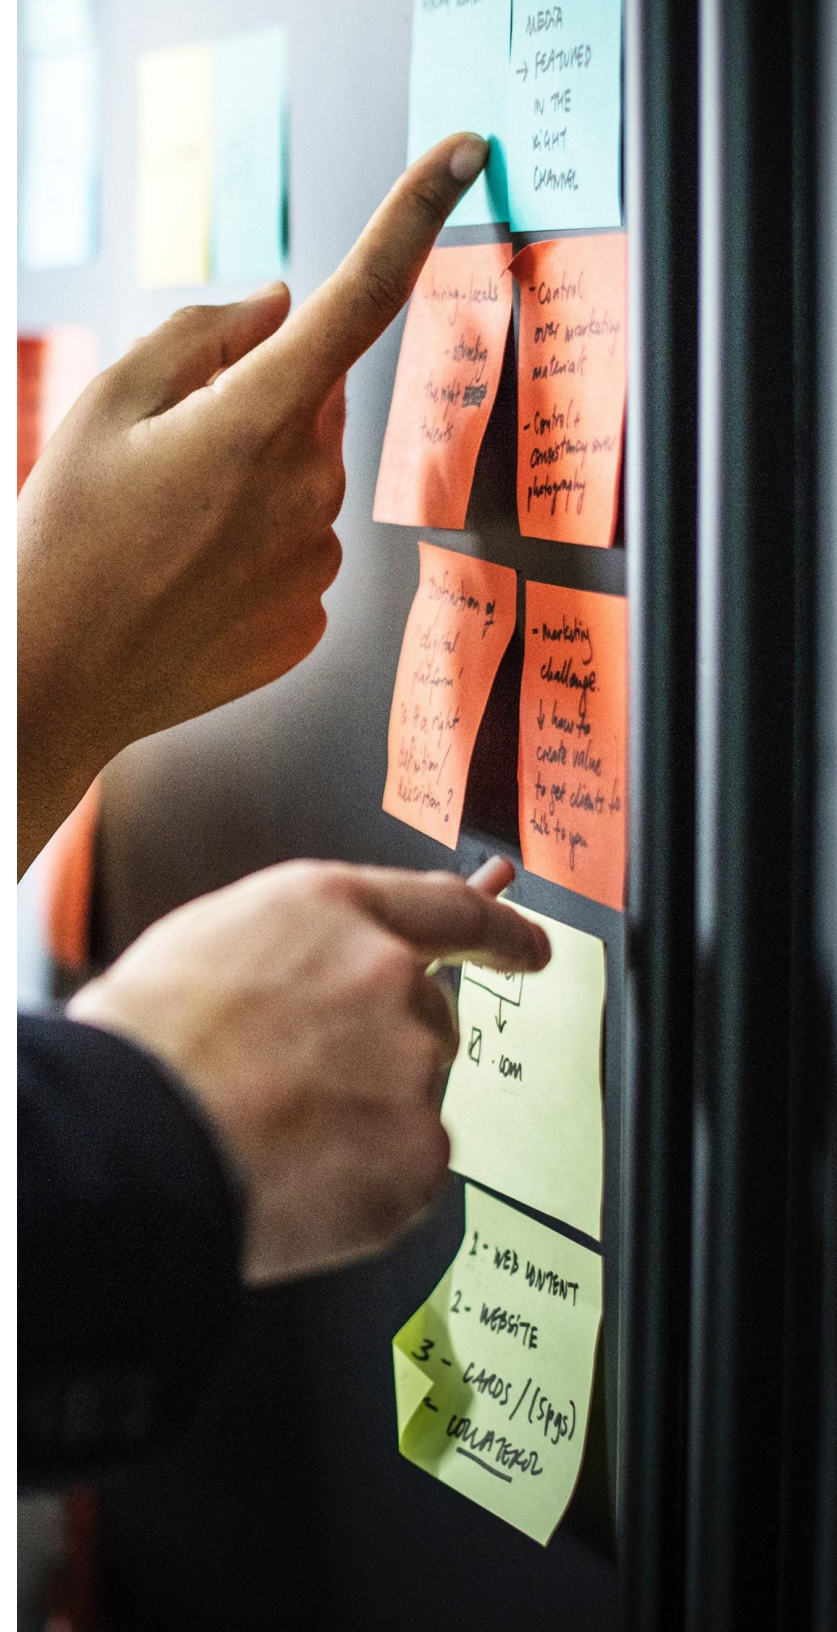 MEDIA
→ FEATURED
IN THE
RIGHT
CHANNEL
- hiring-locals
- attracting
the right
talents
- Control
over marketing
materials
- Control +
consistency over
photography
Definition of
'digital
platform'
is it a right
definition/
description?
- marketing
challenge.
↓ how to
create value
to get clients to
talk to you
↓
☑ .com
1 - WEB CONTENT
2 - WEBSITE
3 - CARDS / (5pgs)
- COLLATEROL